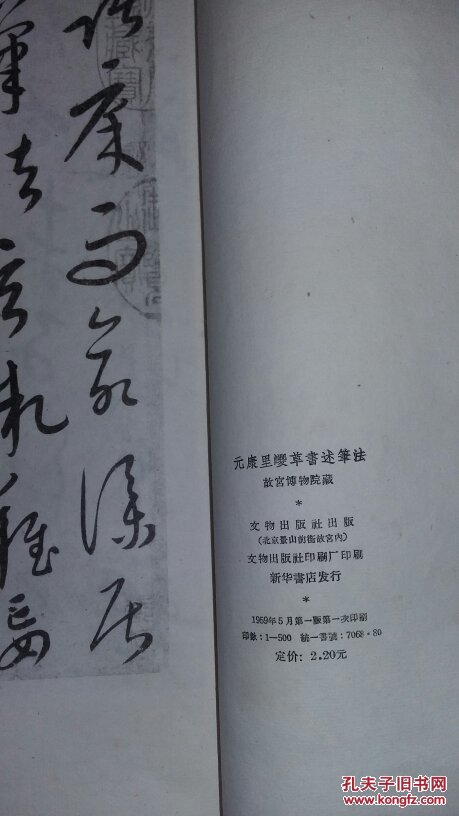 踞床而命僕居
筆法玄微難妄
元康里巙草書述筆法
故宫博物院藏
*
文物出版社出版
(北京景山前街故宫内)
文物出版社印刷厂印刷
新华書店发行
*
1959年5月第一版第一次印刷
印数:1—500 統一書號:7068·80
定价:2.20元
孔夫子旧书网
www.kongfz.com